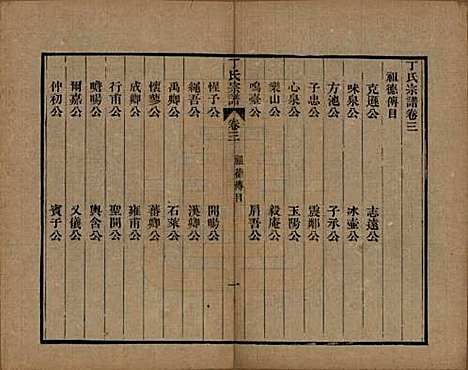 丁氏宗譜卷三
祖德傳目
克遜公 志遠公
味泉公 冰壺公
方池公 子承公
子忠公 震鄰公
心泉公 玉陽公
樂山公 毅庵公
鳴臺公 肩吾公
丁氏宗譜 卷三 祖德傳目 一
惺予公 開暘公
繩吾公 漢卿公
禹卿公 石萊公
懷蓼公 蕃卿公
成卿公 雍甫公
行甫公 聖開公
曉暘公 輿舍公
爾嘉公 又儀公
仲初公 賓子公